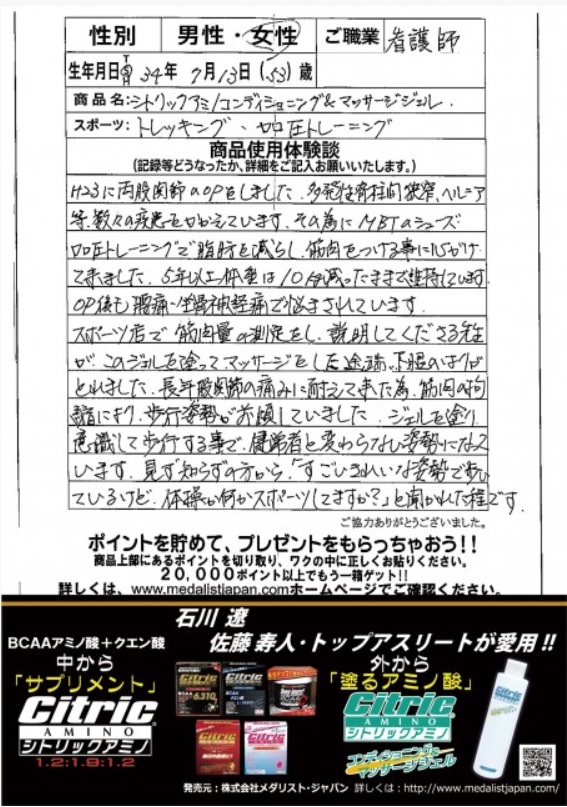 性別 男性・女性 ご職業 看護師
生年月日 34年 7月13日(53)歳
商品名:シトリックアミノコンディショニング&マッサージジェル.
スポーツ:トレッキング、加圧トレーニング
商品使用体験談
(記録等どうなったか、詳細をご記入お願いいたします。)
H23に両股関節のOPをしました.多発性脊柱間狭窄、ヘルニア
等、数々の疾患をかかえています.その為にMBTのシューズ
加圧トレーニングで脂肪を減らし、筋肉をつける事に心がけ
て来ました.5年以上体重は10kg減ったままで維持しています
OP後も腰痛〜坐骨神経痛で悩まされています.
スポーツ店で筋肉量の測定をし、説明してくださる先生
が、このジェルを塗ってマッサージをした途端、下腿のはりが
とれました.長年股関節の痛みに耐えて来た為、筋肉の拘
縮により、歩行姿勢が前傾していました.ジェルを塗り
意識して歩行する事で、健常者と変わらない姿勢になって
います.見ず知らずの方から、「すごいきれいな姿勢で歩い
ているけど、体操か何かスポーツしてますか?」と聞かれた程です.
ご協力ありがとうございました。
ポイントを貯めて、プレゼントをもらっちゃおう!!
商品上部にあるポイントを切り取り、ワクの中に正しくお貼りください。
20,000ポイント以上でもう一箱ゲット!!
詳しくは、www.medalistjapan.comホームページでご確認ください.
石川 遼
佐藤 寿人・トップアスリートが愛用!!
BCAAアミノ酸+クエン酸
中から
「サプリメント」
Citric
AMINO
シトリックアミノ
1.2:1.9:1.2
外から
「塗るアミノ酸」
Citric
AMINO
シトリックアミノ
コンディショニング&
マッサージジェル
発売元:株式会社メダリスト・ジャパン 詳しくは:http://www.medalistjapan.com/